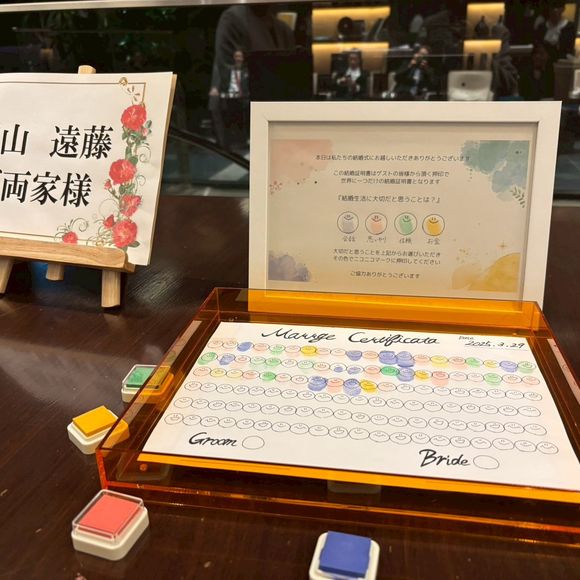 山 遠藤
両家様
本日は私たちの結婚式にお越しいただきありがとうございます
この結婚証明書はゲストの皆様から頂く押印で
世界に一つだけの結婚証明書となります
『結婚生活に大切だと思うことは？』
会話 思いやり 信頼 お金
大切だと思うことを上記からお選びいただき
その色でニコニコマークに押印してください
ご協力ありがとうございます
Marrge Certificata
Date 2025.3.29
Groom
Bride